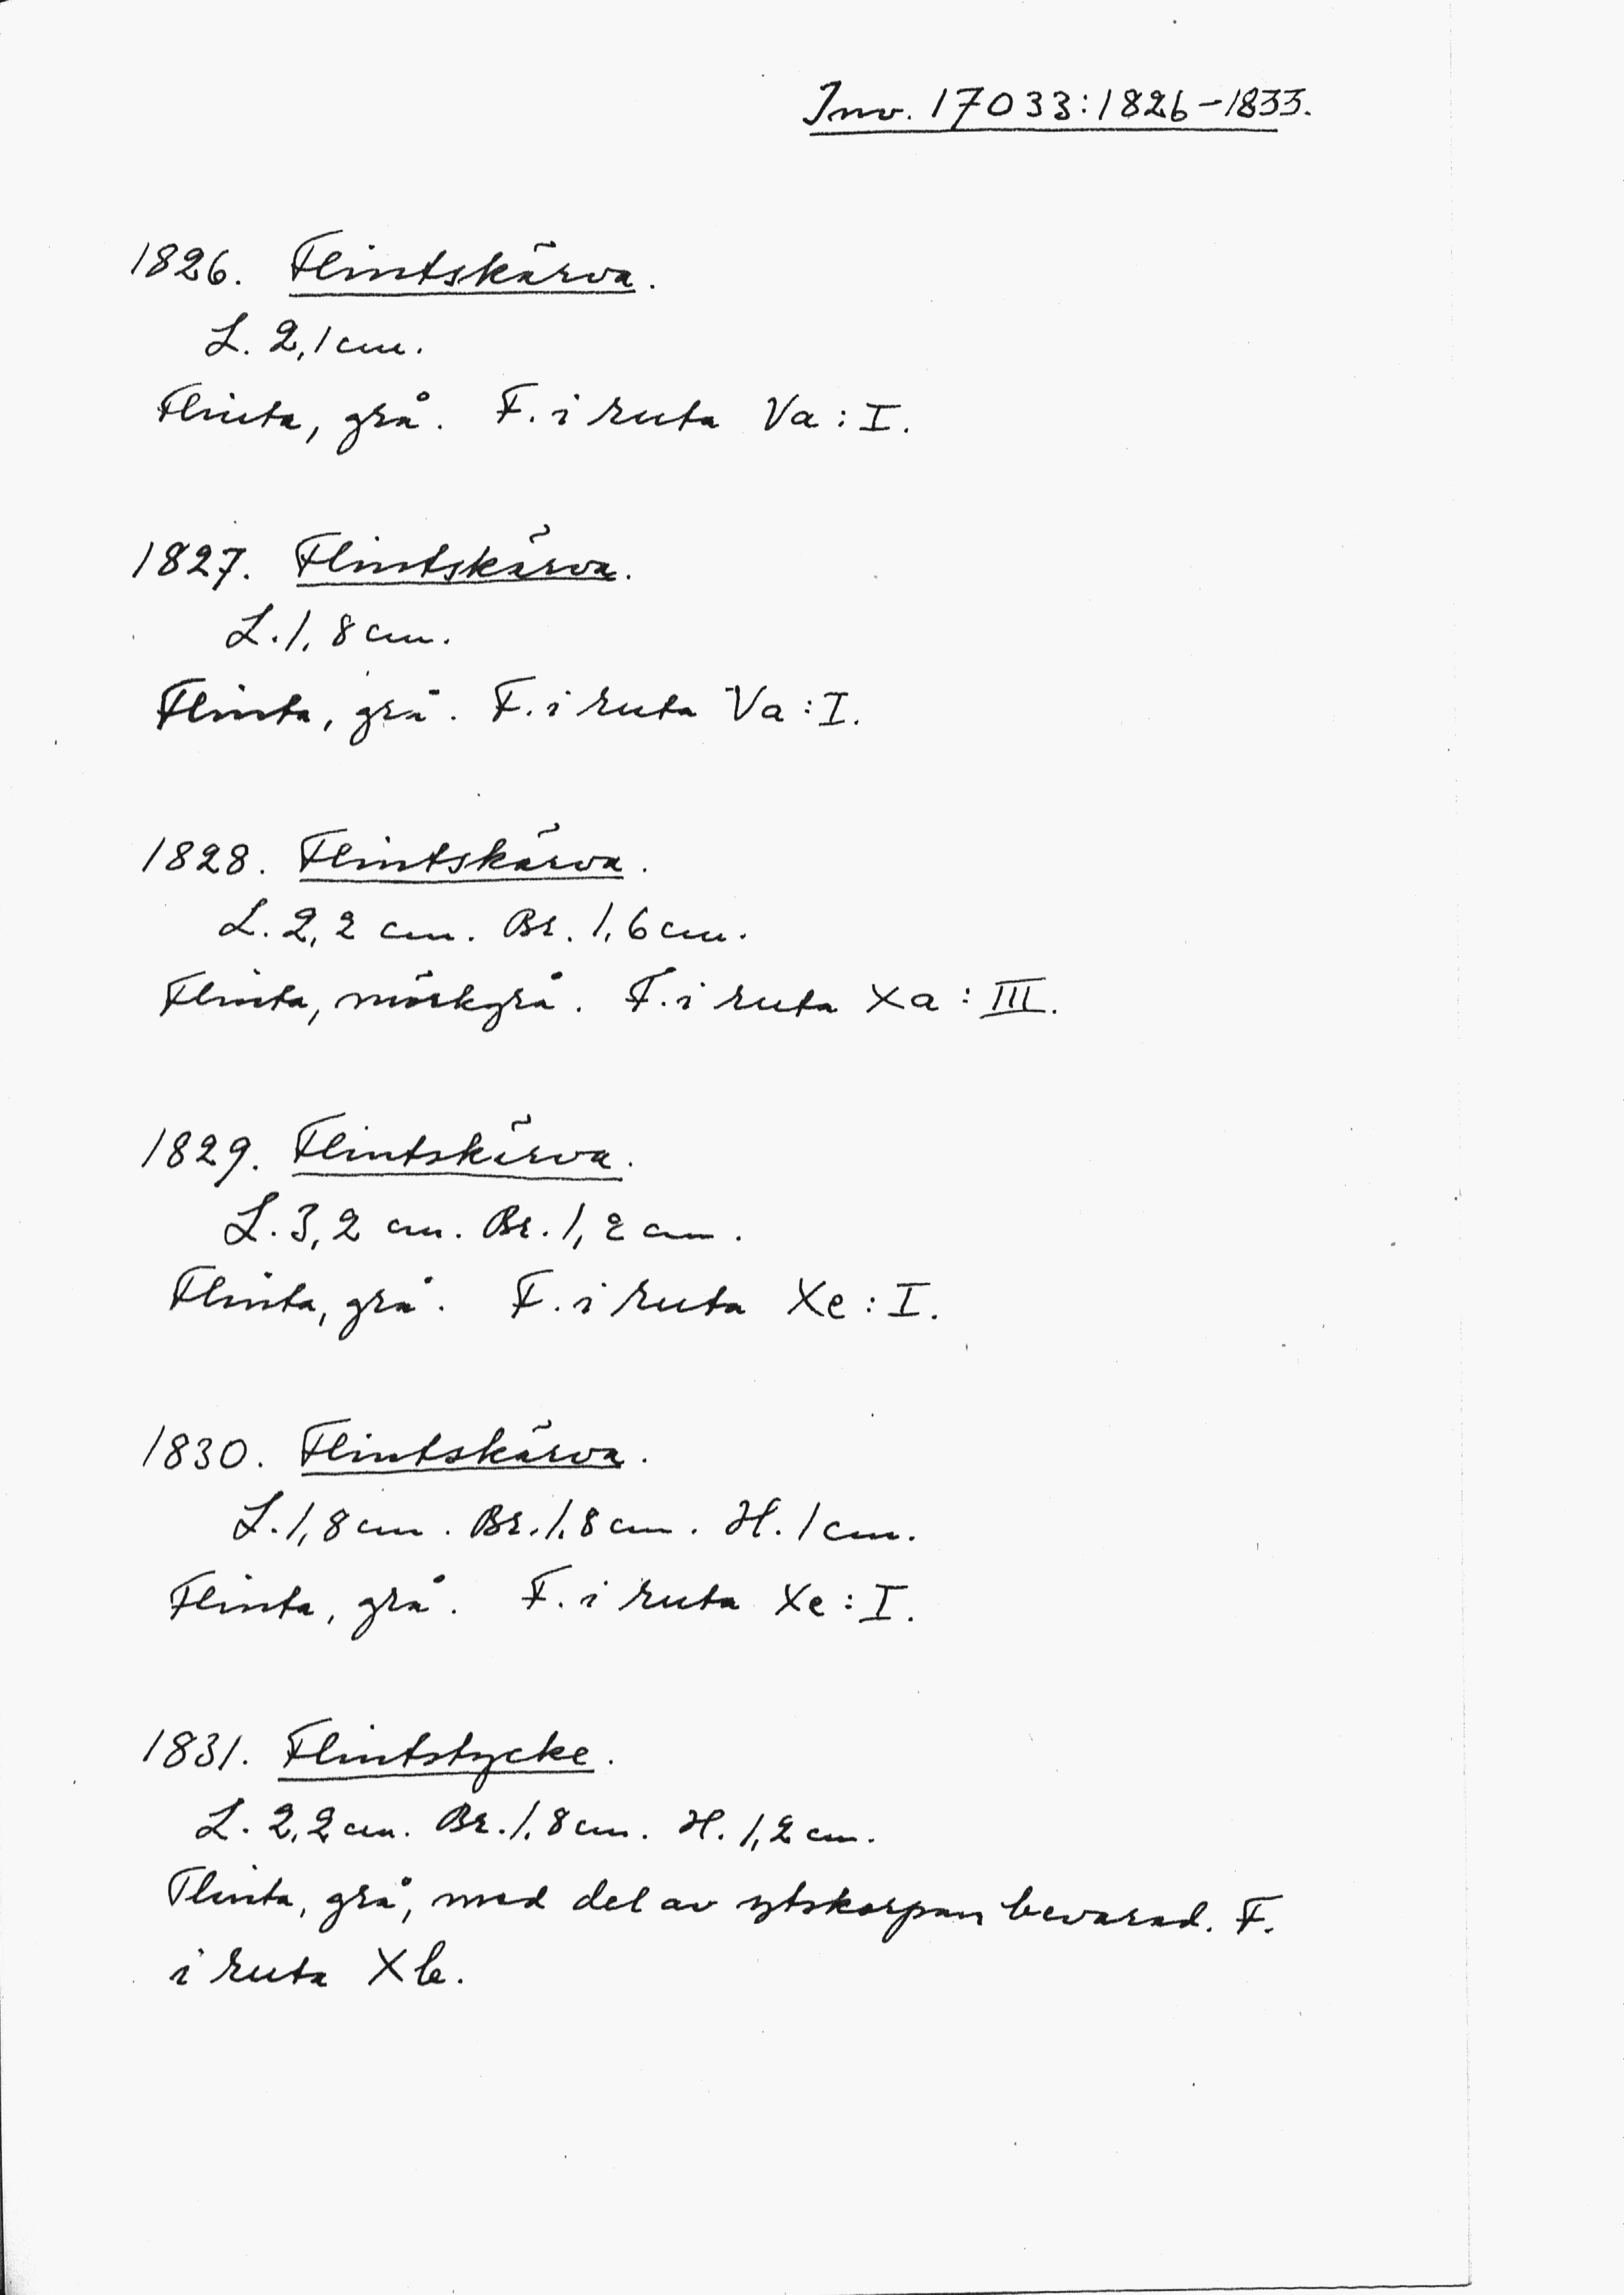 Inv. 17033:1826-1833.
1826. Flintskärva.
L. 2,1 cm.
Flinta, grå. F. i ruta Va : I.
1827. Flintskärva.
L. 1,8 cm.
Flinta, grå. F. i ruta Va : I.
1828. Flintskärva.
L. 2,2 cm. Br. 1,6 cm.
Flinta, mörkgrå. F. i ruta Xa : III.
1829. Flintskärva.
L. 3,2 cm. Br. 1,2 cm.
Flinta, grå. F. i ruta Xe : I.
1830. Flintskärva.
L. 1,8 cm. Br. 1,8 cm. H. 1 cm.
Flinta, grå. F. i ruta Xe : I.
1831. Flintstycke.
L. 2,2 cm. Br. 1,8 cm. H. 1,2 cm.
Flinta, grå, med del av ytskorpan bevarad. F.
i ruta Xb.